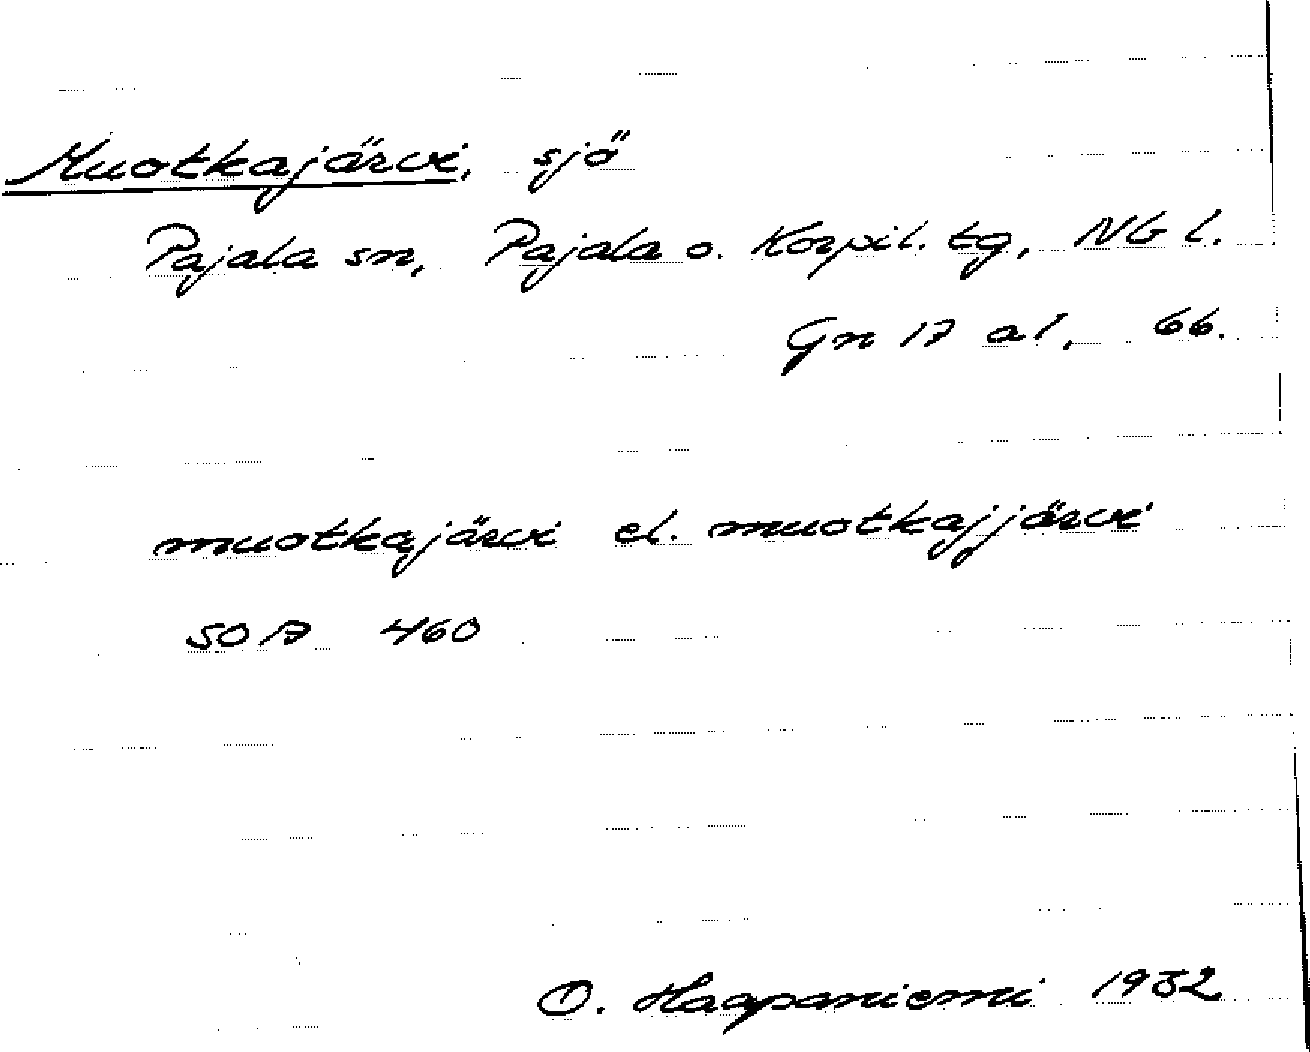 Muotkajärvi, sjö
Pajala sn, Pajala o. Korpil. tg, NB l.
Gn 17 al, 66.
muotkajärvi el. muotkajjärvi
SOA 460
O. Haapaniemi 1932